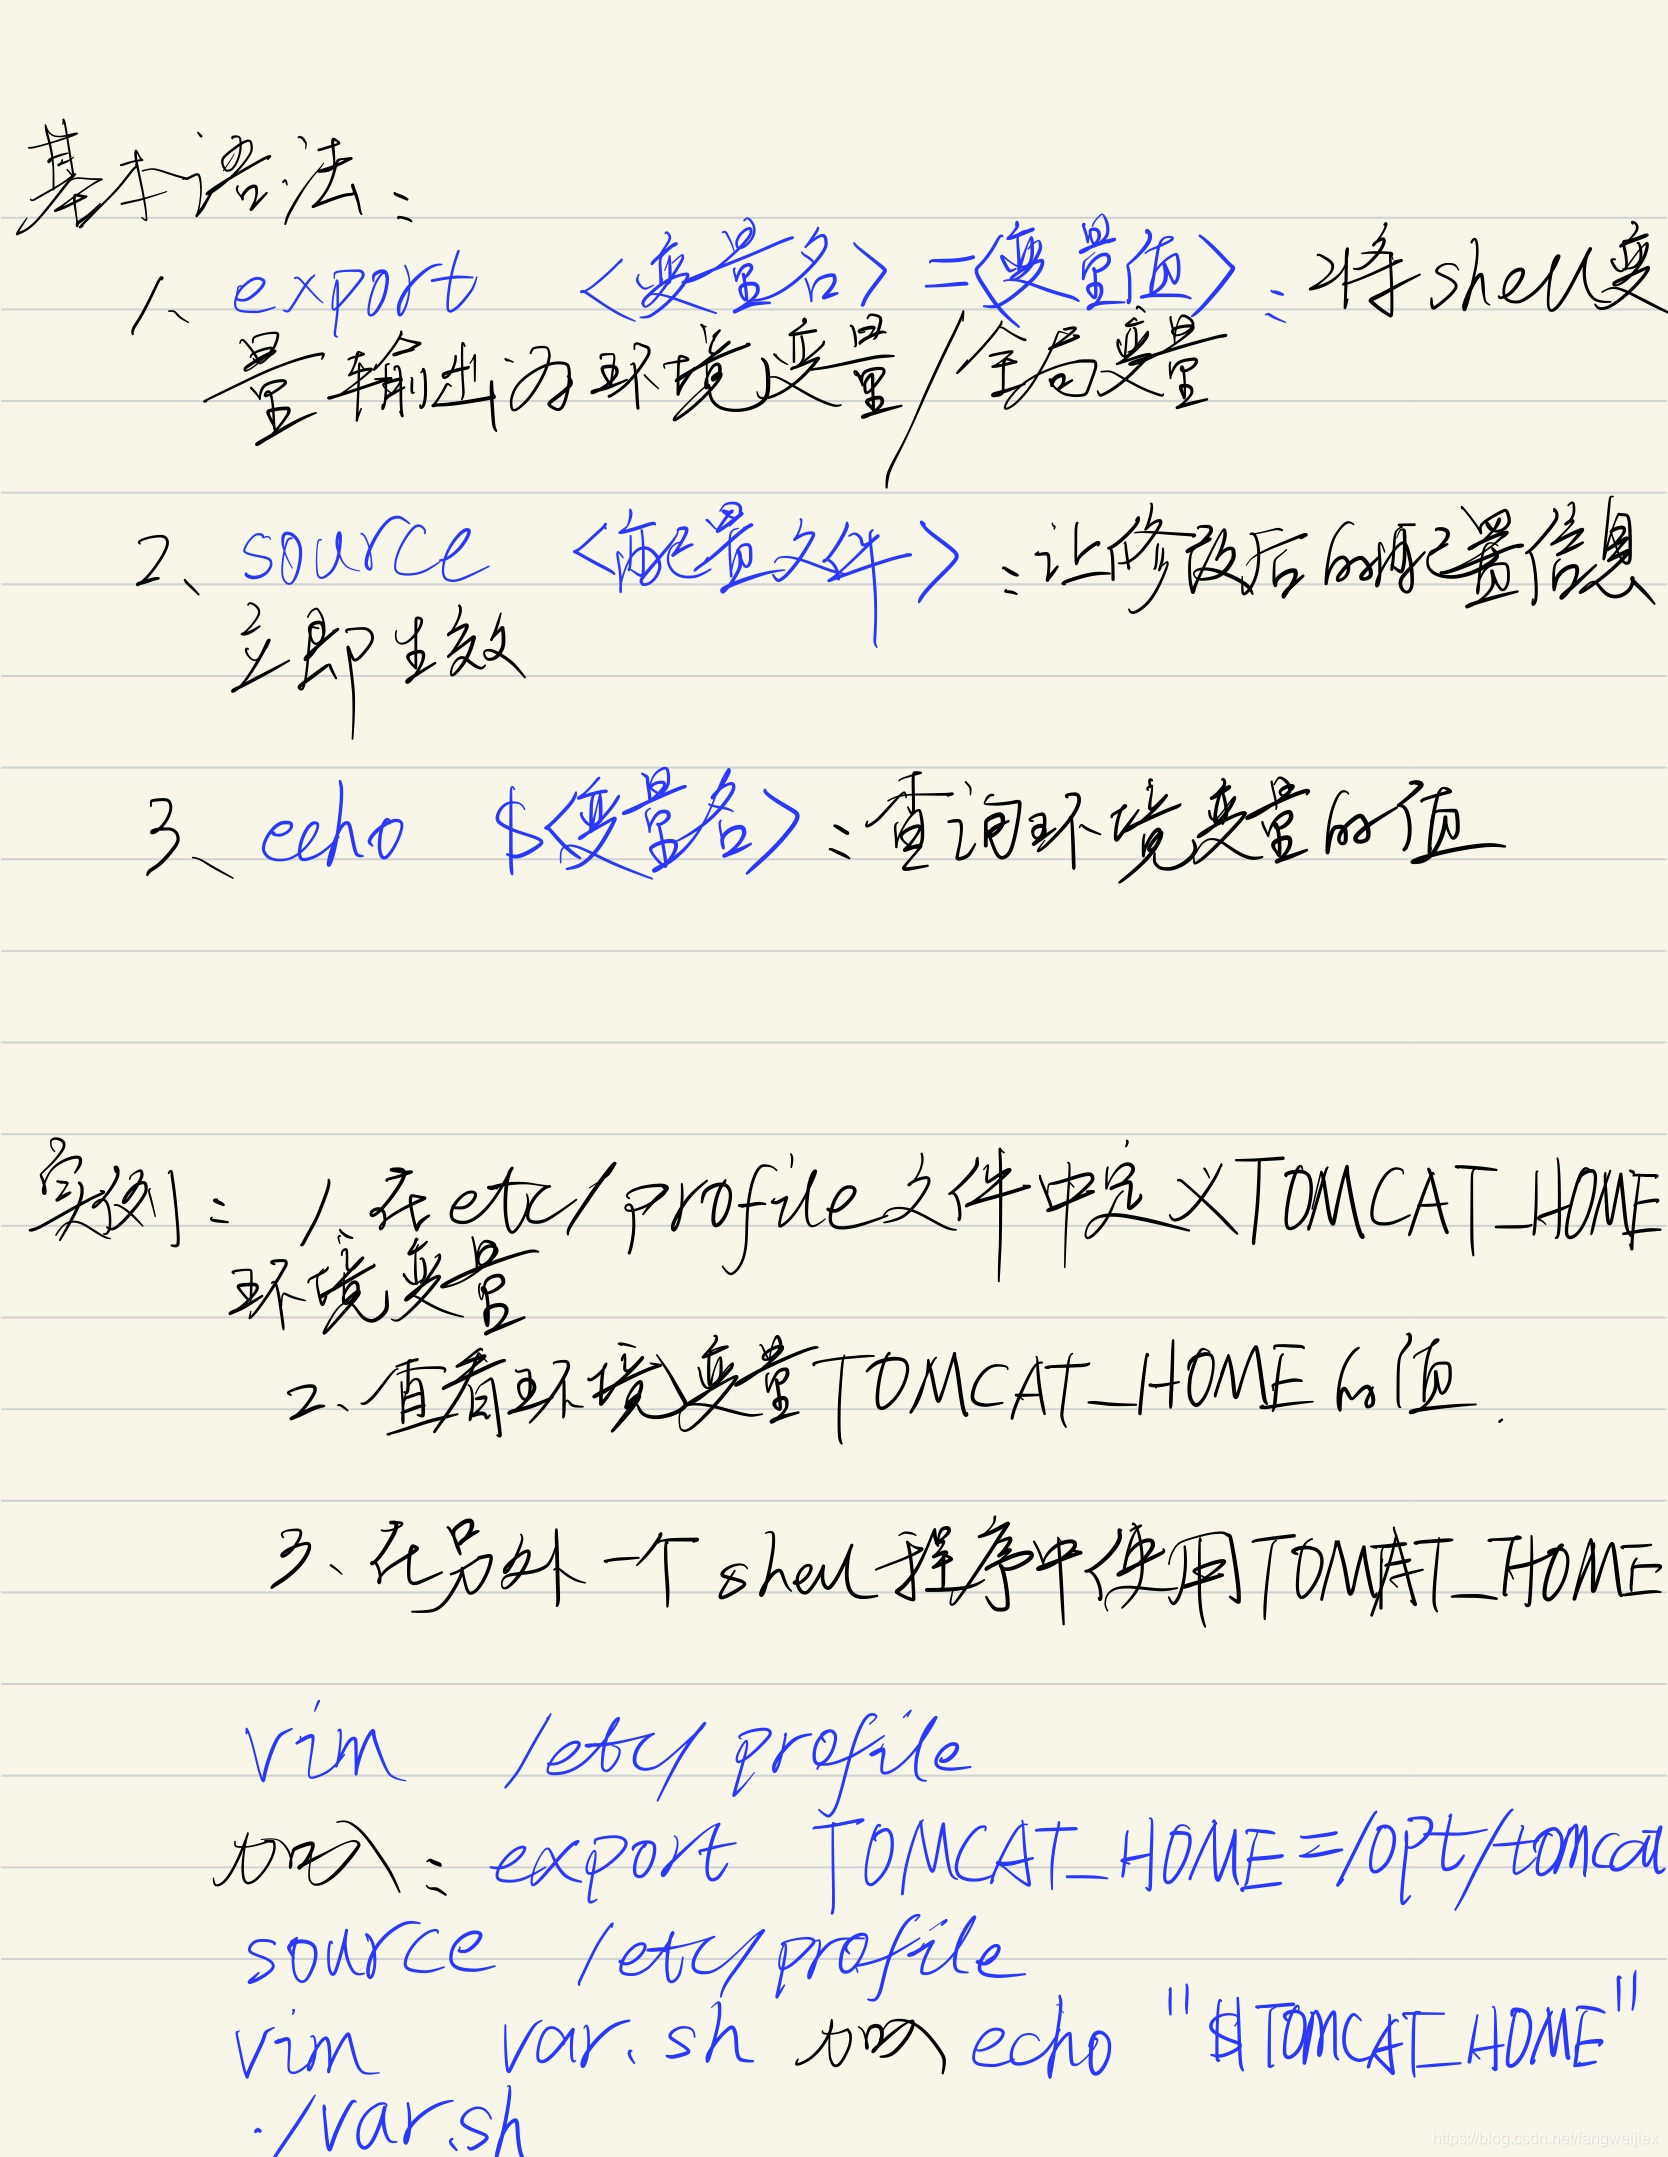 基本语法：
1、export <变量名>=<变量值>：将shell变
量输出为环境变量/全局变量
2、source <配置文件>：让修改后的配置信息
立即生效
3、echo $<变量名>：查询环境变量的值
实例：1、在etc/profile文件中定义TOMCAT_HOME
环境变量
2、查看环境变量TOMCAT_HOME的值.
3、在另外一个shell程序中使用TOMAT_HOME
vim /etc/profile
加入：export TOMCAT_HOME=/opt/tomcat
source /etc/profile
vim var.sh 加入 echo "$TOMCAT_HOME"
./var.sh
https://blog.csdn.net/fangweijiex